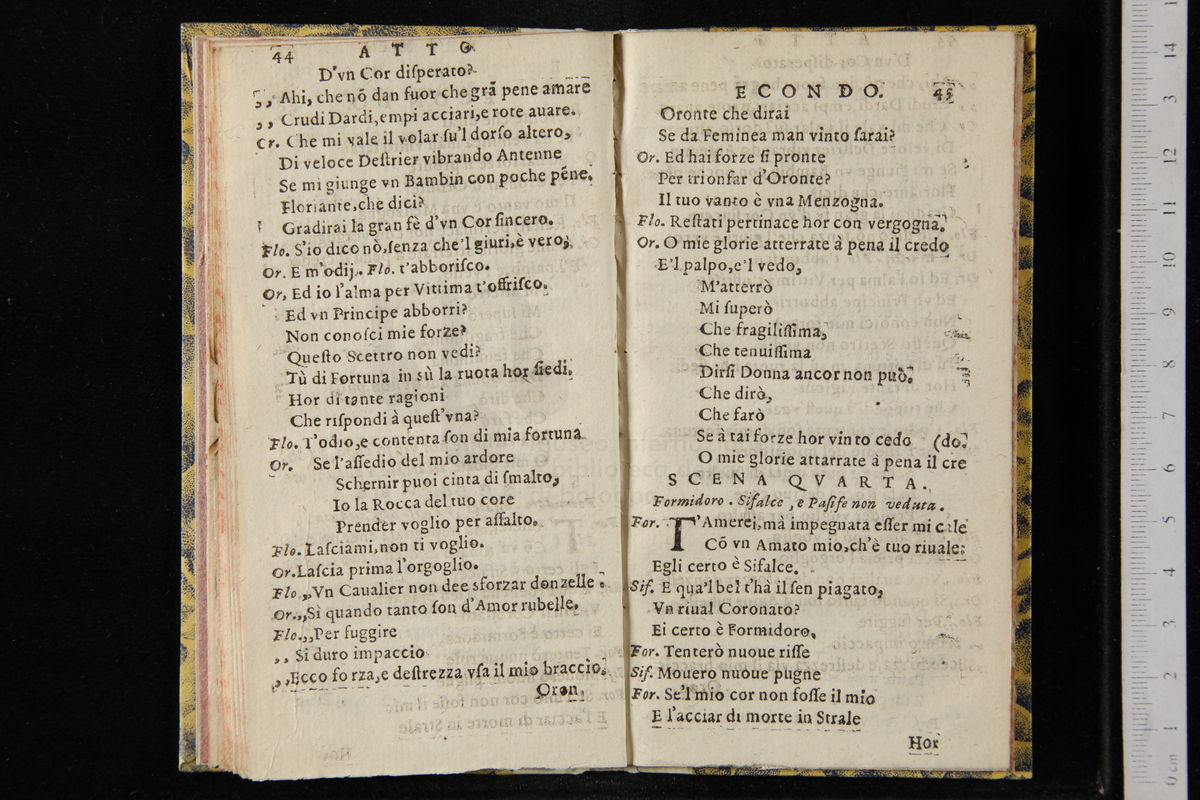 44 ATTO
D'vn Cor diſperato?
,, Ahi, che nõ dan fuor che grã pene amare
,, Crudi Dardi, empi acciari, e rote auare.
Cr. Che mi vale il volar ſu'l dorſo altero,
Di veloce Deſtrier vibrando Antenne
Se mi giunge vn Bambin con poche pēne.
Floriante, che dici?
Gradirai la gran fè d'vn Cor ſincero.
Flo. S'io dico nò, ſenza che'l giuri, è vero;
Or. E m'odij. Flo. t'abboriſco.
Or, Ed io l'alma per Vittima t'offriſco.
Ed vn Principe abborri?
Non conoſci mie forze?
Queſto Scettro non vedi?
Tù di Fortuna in sù la ruota hor ſiedi.
Hor di tante ragioni
Che riſpondi à queſt'vna?
Flo. T'odio, e contenta ſon di mia fortuna
Or. Se l'aſſedio del mio ardore
Schernir puoi cinta di ſmalto,
Io la Rocca del tuo core
Prender voglio per aſſalto.
Flo. Laſciami, non ti voglio.
Or. Laſcia prima l'orgoglio.
Flo ,, Vn Caualier non dee sforzar donzelle.
Or. ,, Sì quando tanto ſon d'Amor rubelle.
Flo. ,, Per fuggire
,, Si duro impaccio
,, Ecco fo rza, e deſtrezza vſa il mio braccio.
Oron.
ECONDO. 45
Oronte che dirai
Se da Feminea man vinto ſarai?
Or. Ed hai forze ſi pronte
Per trionfar d'Oronte?
Il tuo vanto è vna Menzogna.
Flo. Reſtati pertinace hor con vergogna.
Or. O mie glorie atterrate à pena il credo
E'l palpo, e'l vedo,
M'atterrò
Mi ſuperò
Che fragiliſſima,
Che tenuiſſima
Dirſi Donna ancor non può.
Che dirò,
Che farò
Se à tai forze hor vinto cedo (do.
O mie glorie attarrate à pena il cre
SCENA QVARTA.
Formidoro. Sifalce, e Paſife non veduta.
For. T'Amerei, mà impegnata eſſer mi cale
Cõ vn Amato mio, ch'è tuo riuale:
Egli certo è Sifalce.
Sif. E qua'l bel t'hà il ſen piagato,
Vn riual Coronato?
Ei certo è Formidoro.
For. Tenterò nuoue riſſe
Sif. Mouerò nuoue pugne
For. Se'l mio cor non foſſe il mio
E l'acciar di morte in Strale
Hor